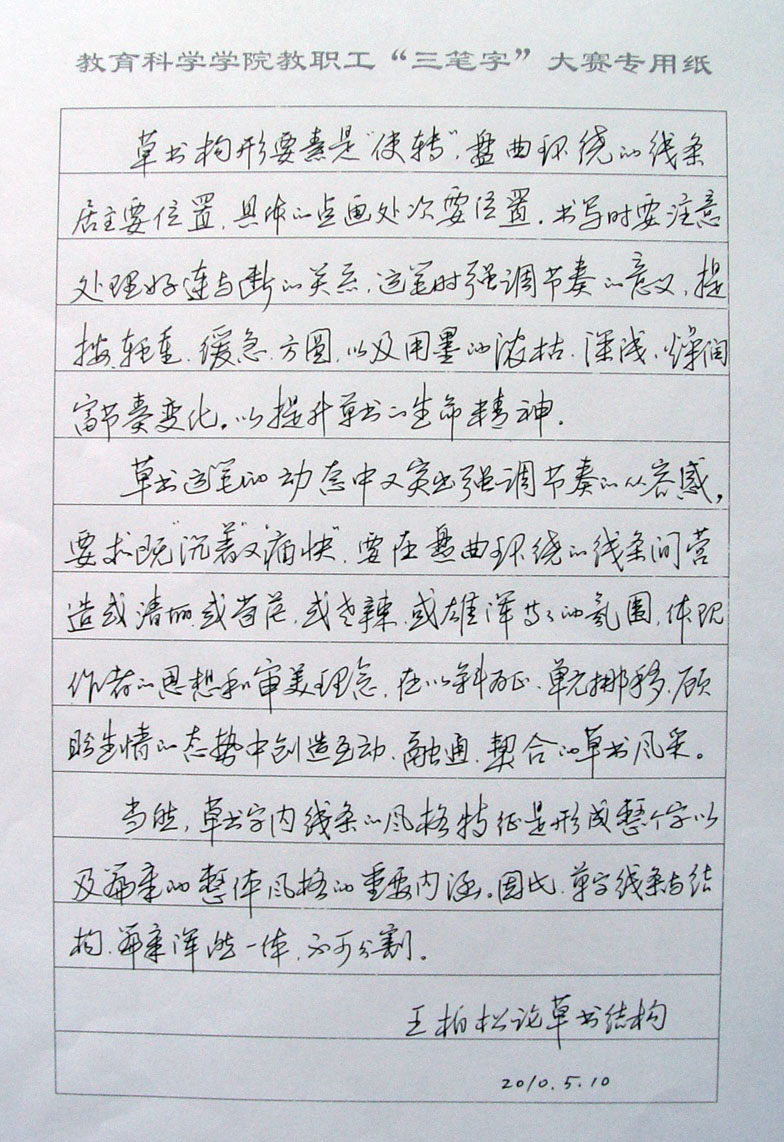 教育科学学院教职工“三笔字”大赛专用纸
草书构形要素是“使转”，盘曲环绕的线条
居主要位置，具体的点画处次要位置。书写时要注意
处理好连与断的关系，运笔时强调节奏的意义，提
按、轻重、缓急、方圆，以及用墨的浓枯、深浅、燥润
富节奏变化。以提升草书的生命精神．
草书运笔的动态中又突出强调节奏的从容感，
要求既“沉着”又“痛快”，要在盘曲环绕的线条间营
造或清丽、或苍茫、或老辣、或雄浑等等的氛围，体现
作者的思想和审美理念，在以斜为正、单元挪移、顾
盼生情的态势中创造互动、融通、契合的草书风采。
当然，草书字内线条的风格特征是形成整个字以
及篇章的整体风格的重要内涵。因此，草字线条与结
构、篇章浑然一体，不可分割。
王柏松论草书结构
2010.5.10